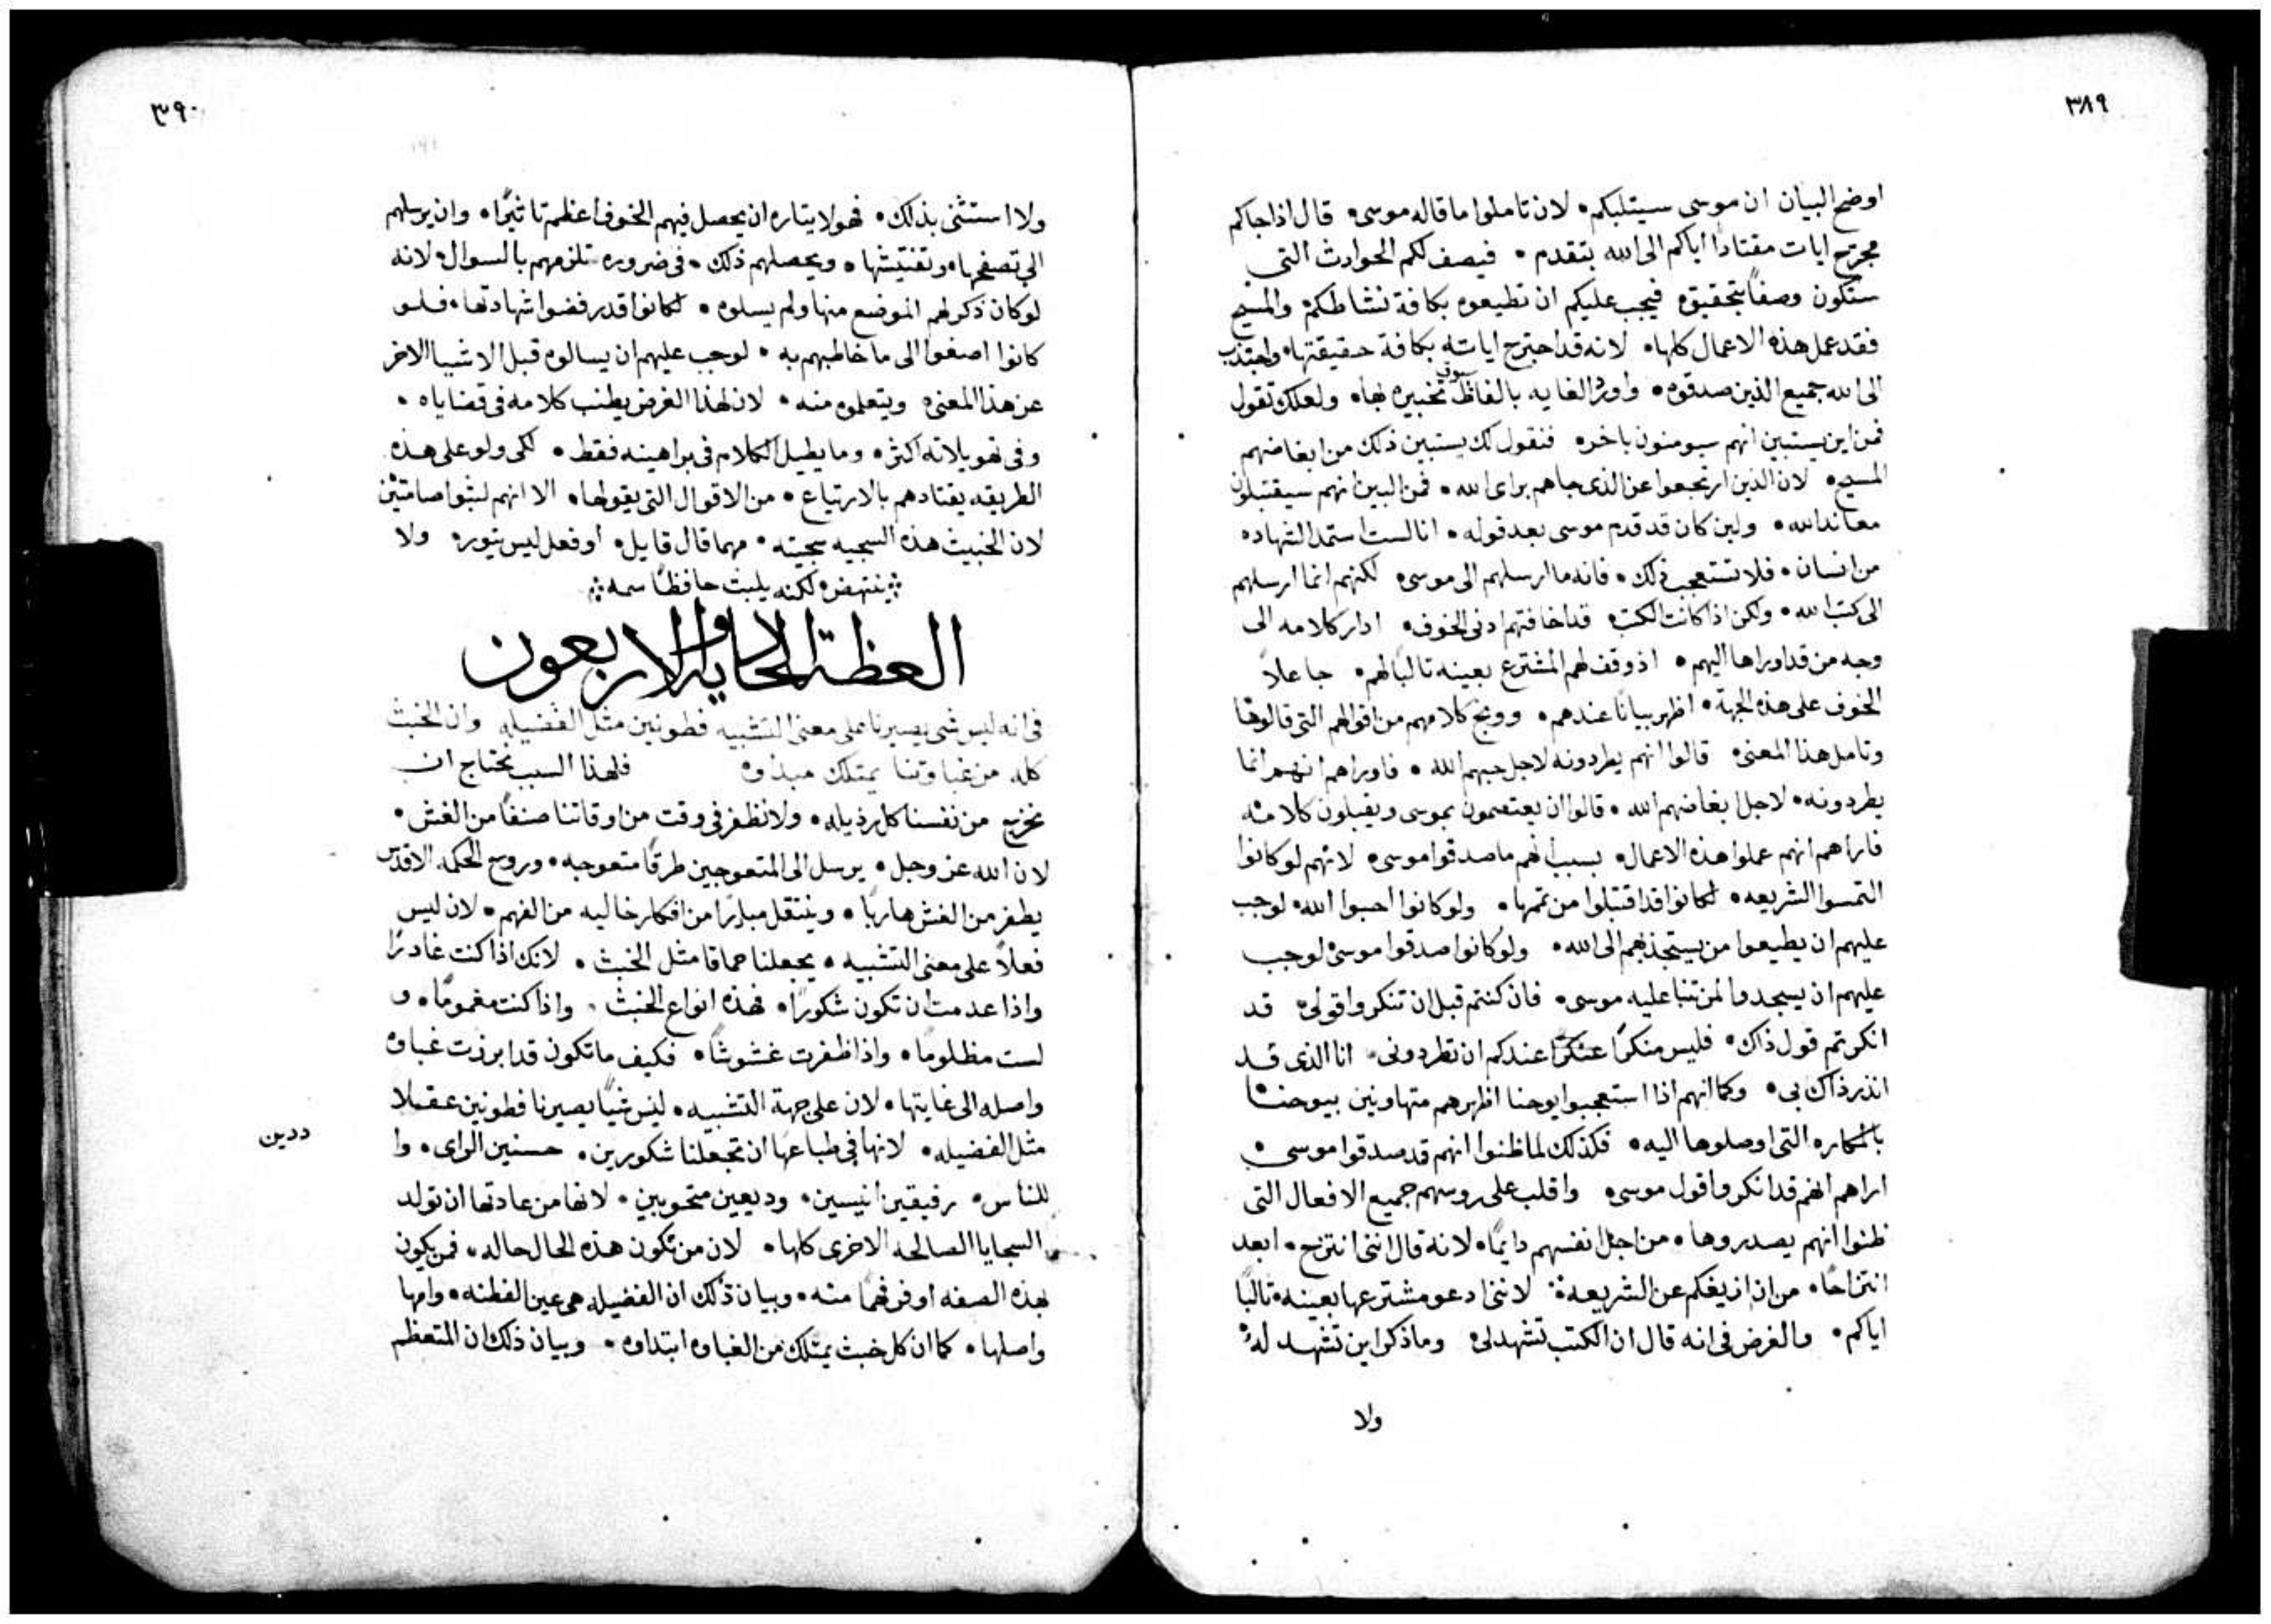 ٣٨٩
اوضح البيان ان موسى سيتلبكم • لان تاملوا ما قاله موسى • قال اذا جاكم
مجترح ايات مقتادًا اياكم الى الله بتقدم • فيصف لكم الحوادث التي
ستكون وصفًا بتحقيق • فيجب عليكم ان تطيعوه بكافة نشاطكم • والمسيح
فقد عمل هذه الاعمال كلها • لانه قد اجترح اياته بكافة حقيقتها • واجتذب
الى الله جميع الذين صدقوه • واورد الغايه بالفاظ تخبيره لها • ولعلك تقول
فمن اين يستبين انهم سيومنون باخر • فنقول لك يستبين ذلك من ابغاضهم
المسيح • لان الذين ارتجعوا عن الذي جاهم براى الله • فمن البين انهم سيقتبلون
معاندا لله • ولين كان قد قدم موسى بعد قوله • انا لست استمد الشهاده
من انسان • فلا تستعجب ذلك • فانه ما ارسلهم الى موسى • لكنهم انما ارسلهم
الى كتب الله • ولكن اذا كانت الكتب قد اخافتهم ادنى الخوف • ادار كلامه الى
وجه من قد اوراها اليهم • اذ وقف لهم المشترع بعينه ثالبًا لهم • جاعلاً
الخوف على هذه الجهة • اظهر بيانًا عندهم • ووبخ كلامهم من اقوالهم التي قالوها
وتامل هذا المعنى • قالوا انهم يطردونه لاجل حبهم الله • فاوراهم انهم انما
يطردونه • لاجل ابغاضهم الله • قالوا ان يعتصمون بموسى ويقبلون كلامه
فاراهم انهم عملوا هذه الاعمال • بسبب انهم ما صدقوا موسى • لانهم لو كانوا
التمسوا الشريعه • لكانوا قد اقتبلوا من تممها • ولو كانوا احبوا الله • لوجب
عليهم ان يطيعوا من يستجذبهم الى الله • ولو كانوا صدقوا موسى لوجب
عليهم ان يسجدوا لمن تنبا عليه موسى • فان كنتم قبل ان تنكروا قولى • قد
انكرتم قول ذاك • فليس منكرًا عندكم ان تطردونى • انا الذي قد
انذر ذاك بي • وكما انهم اذا استعجبوا يوحنا اظهرهم متهاونين بيوحنا
بالمكاره التي اوصلوها اليه • فكذلك لما ظنوا انهم قد صدقوا موسى •
اراهم انهم قد انكروا قول موسى • واقلب على روسهم جميع الافعال التي
ظنوا انهم يصدروها • من اجل نفسهم دايمًا • لانه قال انني انتزح • ابعد
انتزاحًا • من ان ازيغكم عن الشريعة • لانني ادعو مشترعها بعينه • ثالبًا
اياكم • والغرض في انه قال ان الكتب تشهد لي • وما ذكر اين تشهد له
ولا
٣٩٠
ولا استثنى بذلك • فهو لايثاره ان يحصل فيهم الخوف اعظم تاثيرًا • وان يرسلهم
الى تصفحها • وتفتيشها • ويحصلهم ذلك • في ضروره تلزمهم بالسوال • لانه
لو كان ذكر لهم الموضع منها ولم يسلوه • لكانوا قد رفضوا شهادتها • فلو
كانوا اصغوا الى ما خاطبهم به • لوجب عليهم ان يسالوه قبل الاشيا الاخر
عن هذا المعنى • ويتعلموه منه • لان لهذا الغرض يطنب كلامه في قضاياه •
وفي تهويلاته اكثر • وما يطيل الكلام في براهينه فقط • لكي ولو على هذه
الطريقه يقتادهم بالارتياع • من الاقوال التي يقولها • الا انهم لبثوا صامتين
لان الخبيث هذه السجيه سجيته • مهما قال قايل • او فعل ليس يثور • ولا
ينتهض • لكنه يلبث حافظًا سمه
العظة الحاديه والاربعون
في انه ليس شى يصيرنا على معنى التشبيه فطونين مثل الفضيله وان الخبث
كله من غباوتنا يمتلك مبداوه فلهذا السبب نحتاج ان
نخرج من نفسنا كل رذيله • ولا نظفر في وقت من اوقاتنا صنفًا من الغش •
لان الله عز وجل • يرسل الى المتعوجين طرقًا متعوجه • وروح الحكمه الاقدس
يطفر من الغش هاربًا • وينتقل مبادرًا من افكار خاليه من الفهم • لان ليس
فعلاً على معنى التشبيه • يجعلنا حماقا مثل الخبث • لانك اذا كنت غادرًا
واذا عدمت ان تكون شكورًا • فهذه انواع الخبث • واذا كنت مغمومًا • و
لست مظلومًا • واذا ظفرت غشوشًا • فكيف ما تكون قد ابرزت غباوه
واصله الى غايتها • لان على جهة التشبيه • ليس شيًا يصيرنا فطونين عقلا
مثل الفضيله • لانها في طباعها ان تجعلنا شكورين • حسنين الراى • وا
ددين
للناس • رفيقين انيسين • وديعين متحوبين • لانها من عادتها ان تولد
السجايا الصالحه الاخرى كلها • لان من تكون هذه الحال حاله • فمن يكون
بهذه الصفه اوفر فهمًا منه • وبيان ذلك ان الفضيله هي عين الفطنه • وامها
واصلها • كما ان كل خبث يمتلك من الغباوه ابتداوه • وبيان ذلك ان المتعظم